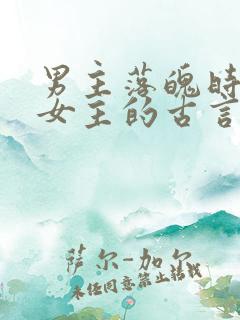 男主落魄时
女主的古言
萨尔-加尔
未经同意禁止搭载